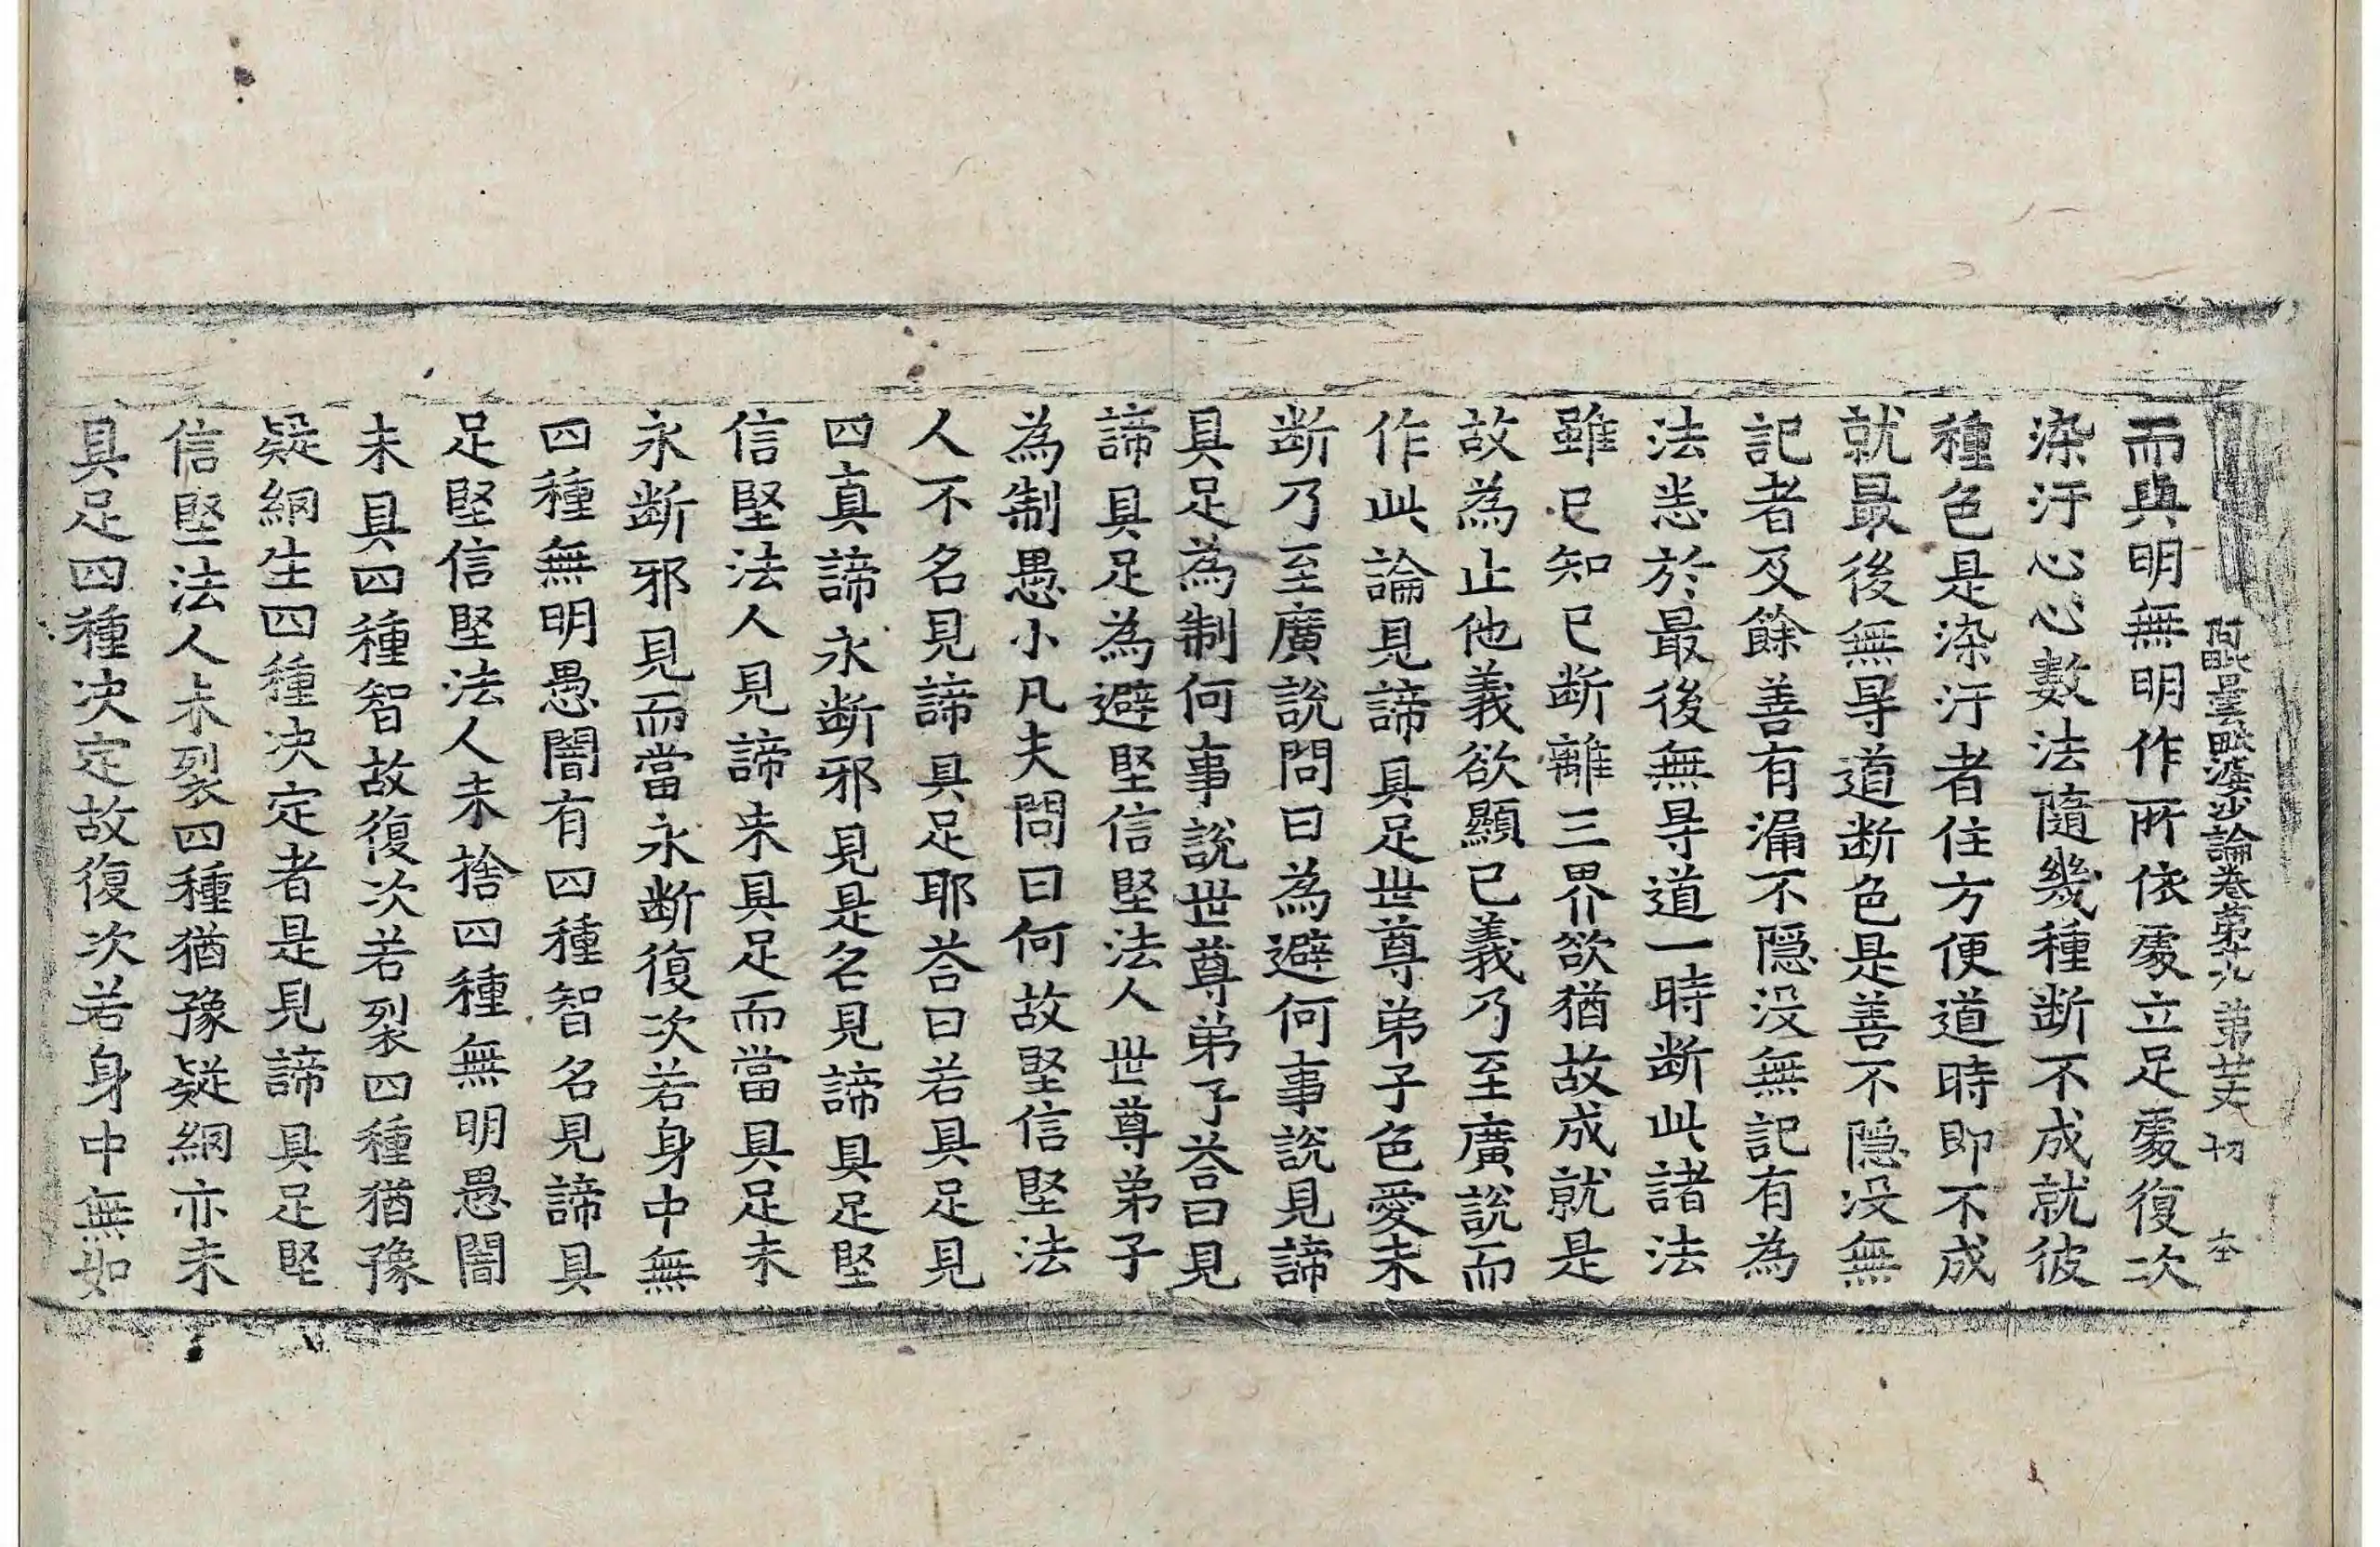 阿毗曇毗婆沙論卷第十九 第廿丈 切 夲
而與明無明作所依處立足處復次
染汙心心數法隨幾種断不成就彼
種色是染汙者住方便道時即不成
就最後無㝵道断色是善不隱没無
記者及餘善有漏不隱没無記有為
法悉於最後無㝵道一時断此諸法
雖已知已断離三界欲猶故成就是
故為止他義欲顯已義乃至廣說而
作此論見諦具足世尊弟子色愛未
断乃至廣說問曰為避何事說見諦
具足為制何事說世尊弟子荅曰見
諦具足為避堅信堅法人世尊弟子
為制愚小凡夫問曰何故堅信堅法
人不名見諦具足耶荅曰若具足見
四真諦永断邪見是名見諦具足堅
信堅法人見諦未具足而當具足未
永断邪見而當永断復次若身中無
四種無明愚闇有四種智名見諦具
足堅信堅法人未捨四種無明愚闇
未具四種智故復次若裂四種猶豫
疑網生四種决定者是見諦具足堅
信堅法人未裂四種猶豫疑網亦未
具足四種决定故復次若身中無如